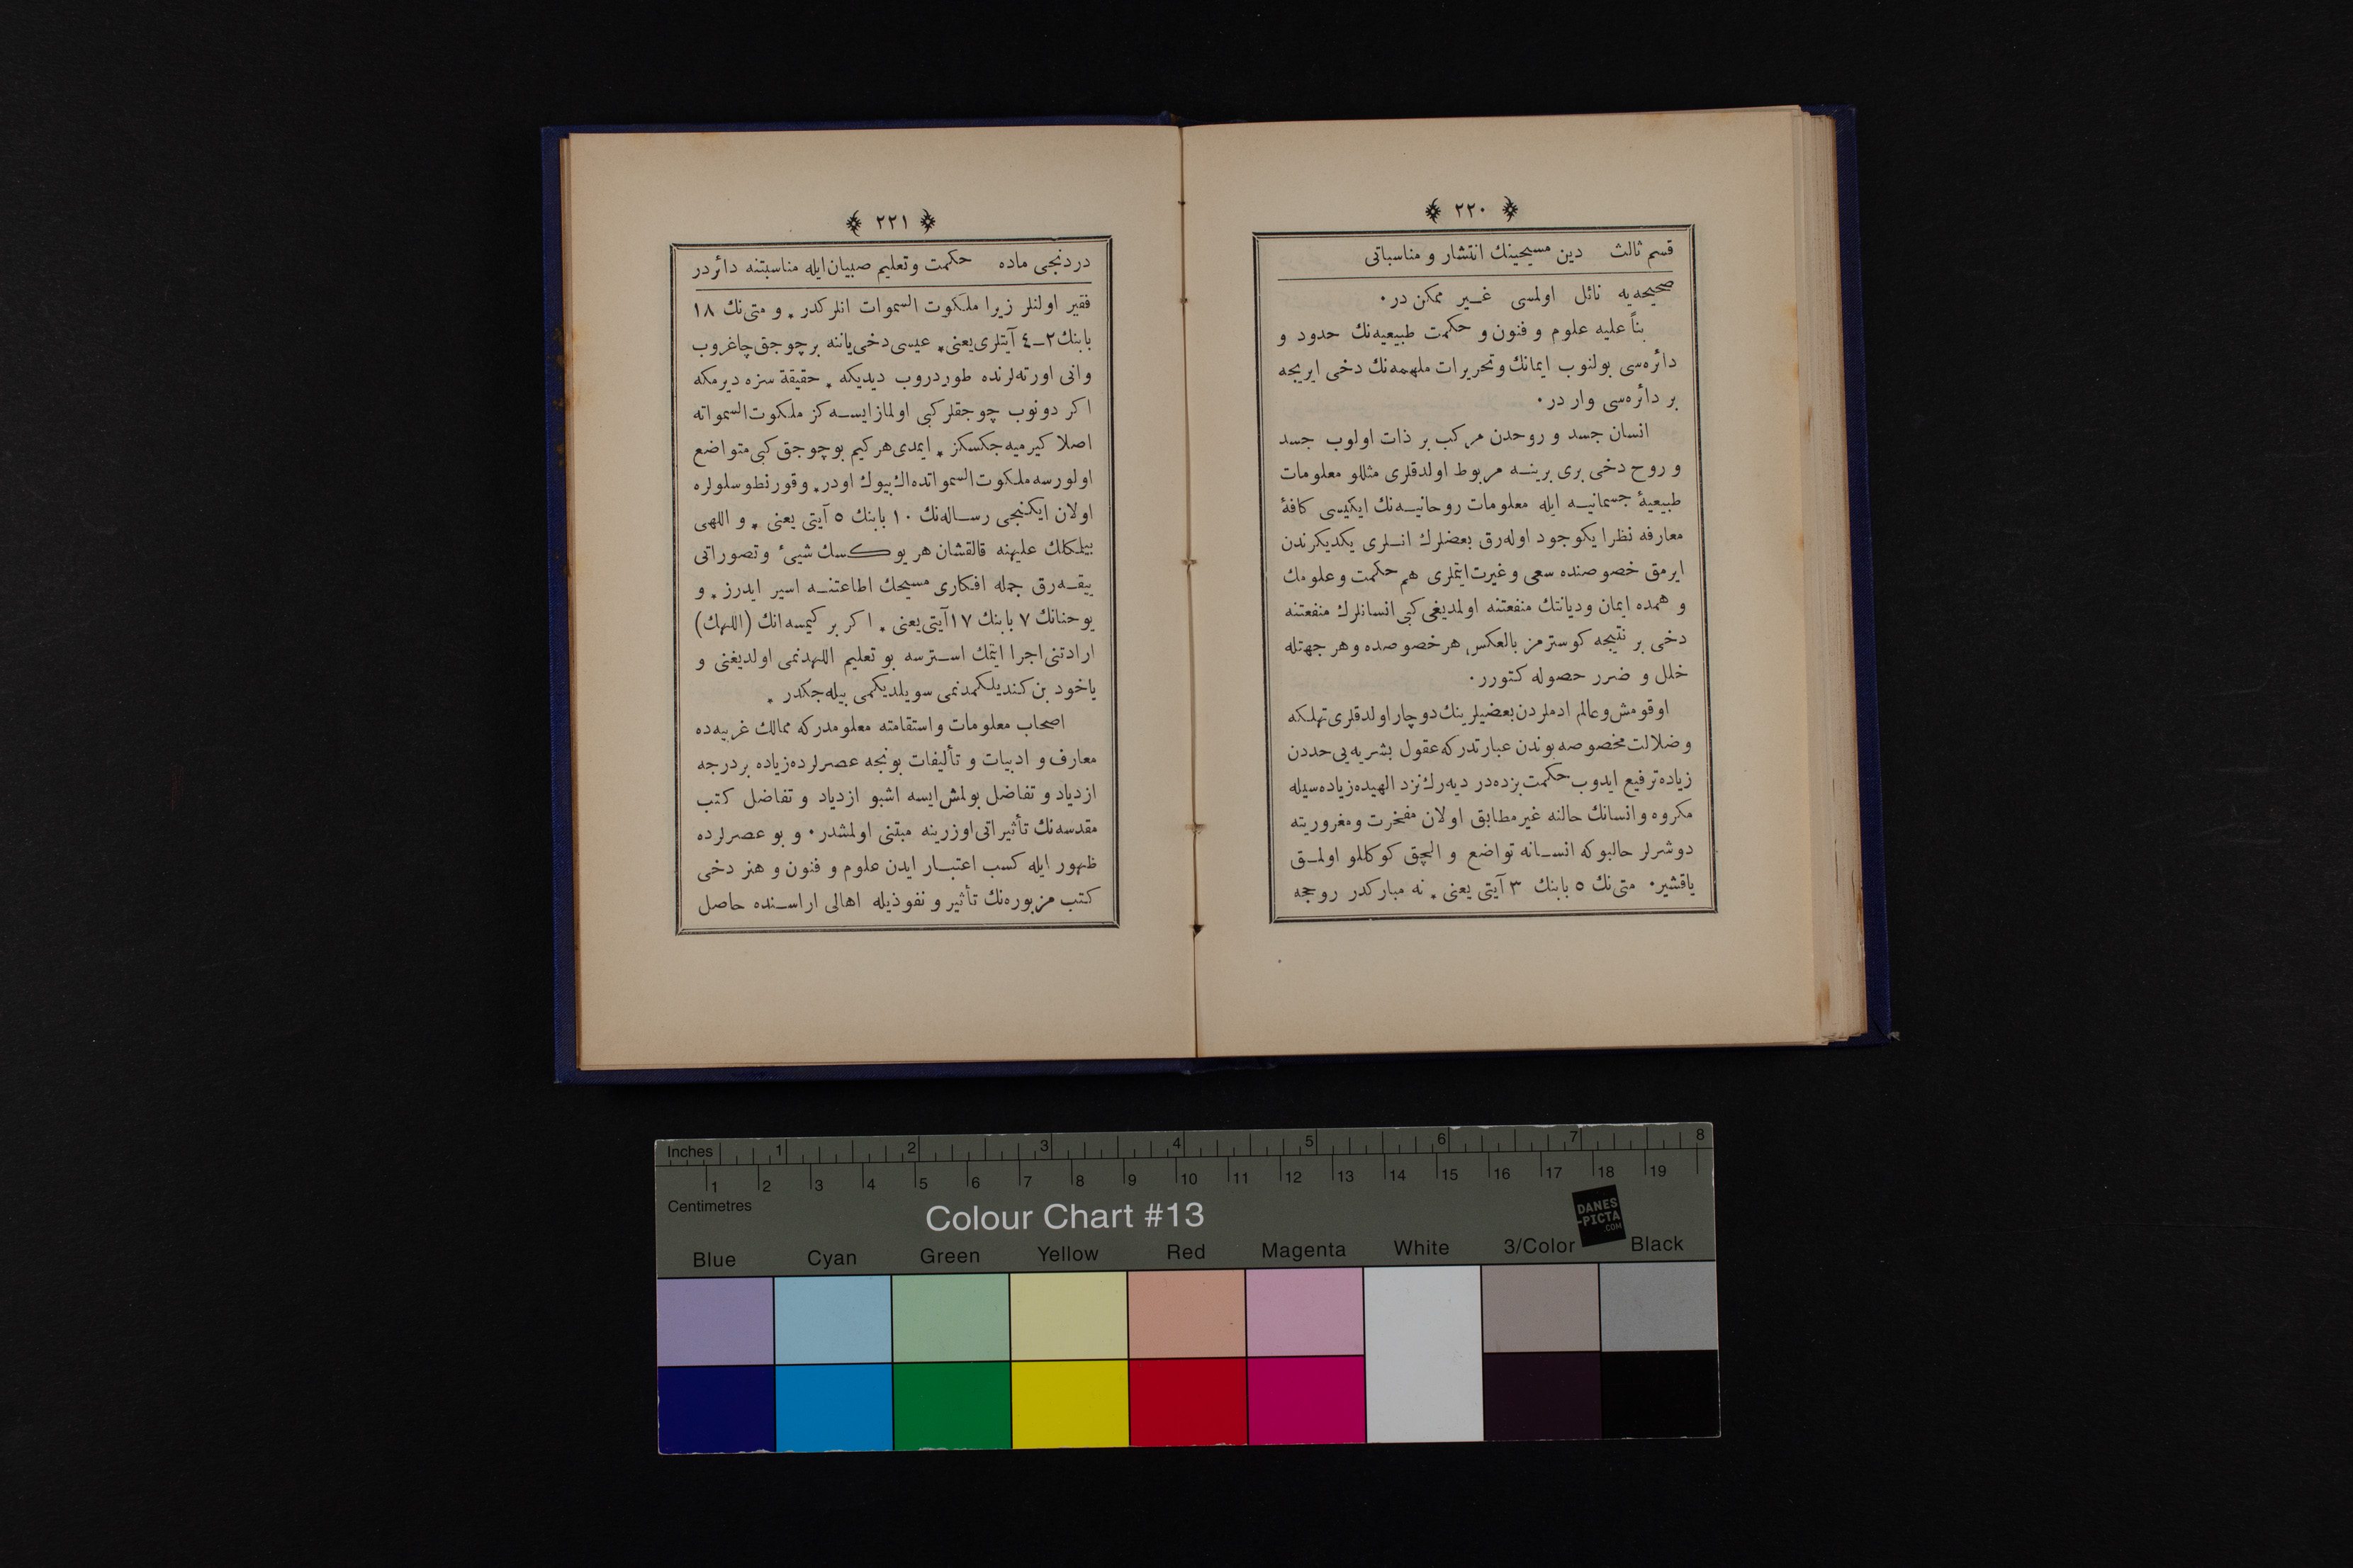 ﴿ ٢٢٠ ﴾
قسم ثالث دين مسيحينك انتشار و مناسباتى
صحيحه‌يه نائل اولمسى غير ممكن در٠
بناً عليه علوم و فنون و حكمت طبيعيه‌نك حدود و
دائره‌سى بولنوب ايمانك و تحريرات ملهمه‌نك دخى ايريجه
بر دائره‌سى وار در٠
انسان جسد و روحدن مركب بر ذات اولوب جسد
و روح دخى برى برينه مربوط اولدقلرى مثللو معلومات
طبيعيۀ جسمانيه ايله معلومات روحانيه‌نك ايكيسى كافۀ
معارفه نظرا يكوجود اوله‌رق بعضلرك انلرى يكديكرندن
ايرمق خصوصنده سعى و غيرت ايتملرى هم حكمت و علومك
و همده ايمان و ديانتك منفعتنه اولمديغى كبى انسانلرك منفعتنه
دخى بر نتيجه كوسترمز بالعكس هر خصوصده و هر جهتله
خلل و ضرر حصوله كتورر٠
اوقومش و عالم ادملردن بعضيلرينك دوچار اولدقلرى تهلكه
و ضلالت مخصوصه بوندن عبارتدر كه عقول بشريه‌يى حددن
زياده ترفيع ايدوب حكمت بزده‌در ديه‌رك نزد الهيده زياده‌سيله
مكروه و انسانك حالنه غير مطابق اولان مفخرت و مغروريته
دوشرلر حالبوكه انسانه تواضع و الچق كوكللو اولمق
ياقشير٠ متى‌نك ٥ بابنك ٣ آيتى يعنى ٭ نه مباركدر روحجه
﴿ ٢٢١ ﴾
دردنجى ماده حكمت و تعليم صبيان ايله مناسبتنه دائردر
فقير اولنلر زيرا ملكوت السموات انلركدر ٭ و متى‌نك ١٨
بابنك ٢ـ٤ آيتلرى يعنى ٭ عيسى دخى ياننه بر چوجق چاغروب
وانى اورته‌لرنده طوردروب ديديكه ٭ حقيقة سزه ديرمكه
اكر دونوب چوجقلر كبى اولماز ايسه‌كز ملكوت السمواته
اصلا كيرميه‌جكسكز ٭ ايمدى هر كيم بو چوجق كبى متواضع
اولورسه ملكوت السمواتده اك بيوك اودر٭ و قورنطوسلولره
اولان ايكنجى رساله‌نك ١٠ بابنك ٥ آيتى يعنى ٭ و اللهى
بيلمكلك عليهنه قالقشان هر يوكسك شيئ و تصوراتى
ييقه‌رق جمله افكارى مسيحك اطاعتنه اسير ايدرز ٭ و
يوحنانك ٧ بابنك ١٧ آيتى يعنى ٭ اكر بر كيمسه انك (اللهك)
ارادتنى اجرا ايتمك استرسه بو تعليم اللهدنمى اولديغنى و
ياخود بن كنديلكمدنمى سويلديكمى بيله‌جكدر ٭
اصحاب معلومات و استقامته معلومدر كه ممالك غربيه‌ده
معارف و ادبيات و تأليفات بونجه عصرلرده زياده بر درجه
ازدياد و تفاضل بولمش ايسه اشبو ازدياد و تفاضل كتب
مقدسه‌نك تأثيراتى اوزرينه مبتنى اولمشدر٠ و بو عصرلرده
ظهور ايله كسب اعتبار ايدن علوم و فنون و هنر دخى
كتب مزبوره‌نك تأثير و نفوذيله اهالى اراسنده حاصل
Inches 1 2 3 4 5 6 7 8
1 2 3 4 5 6 7 8 9 10 11 12 13 14 15 16 17 18 19
Centimetres
Colour Chart #13
DANES
-PICTA
.COM
Blue Cyan Green Yellow Red Magenta White 3/Color Black